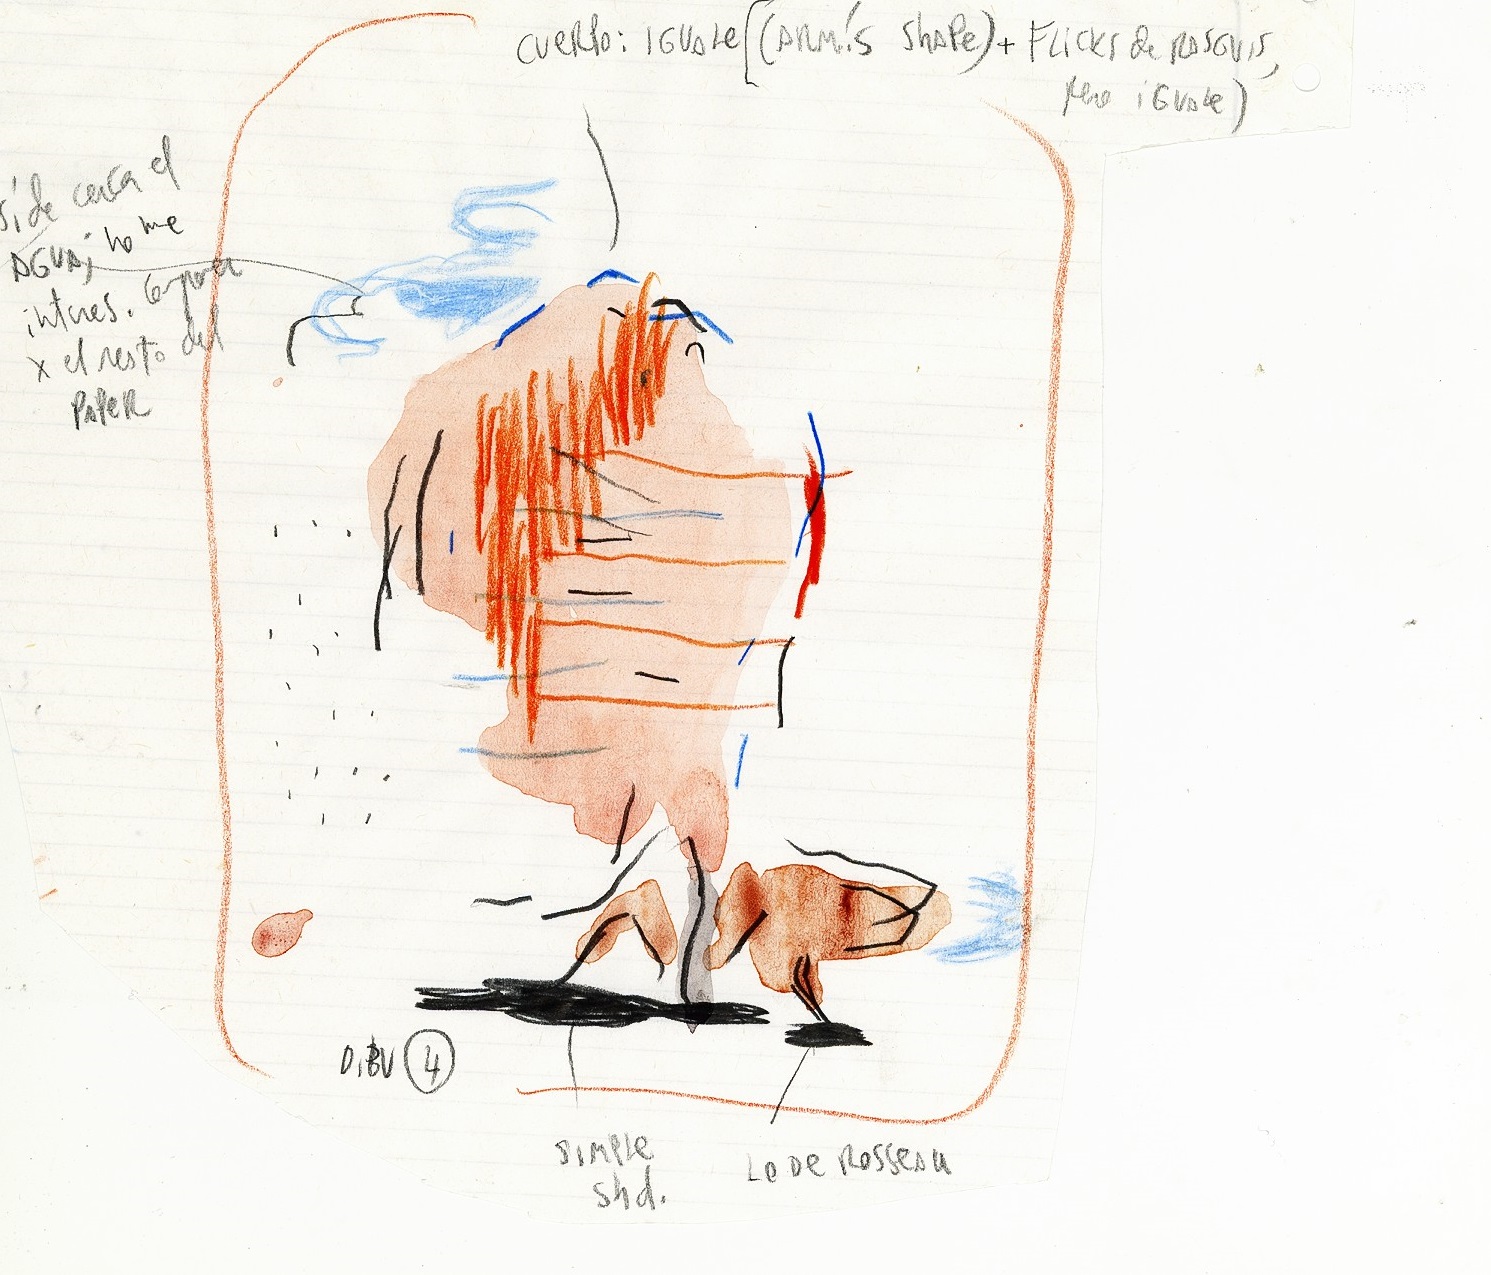 CUERPO: IGUALE [(ARM'S SHAPE) + FLICKS de RASGUIS,
pero iGUALe)
Side cerca el
AGUA; no me
interes.
x el resto del
PAPER
DiBU 4
SIMPLE
Shd.
LO DE ROSSEAU